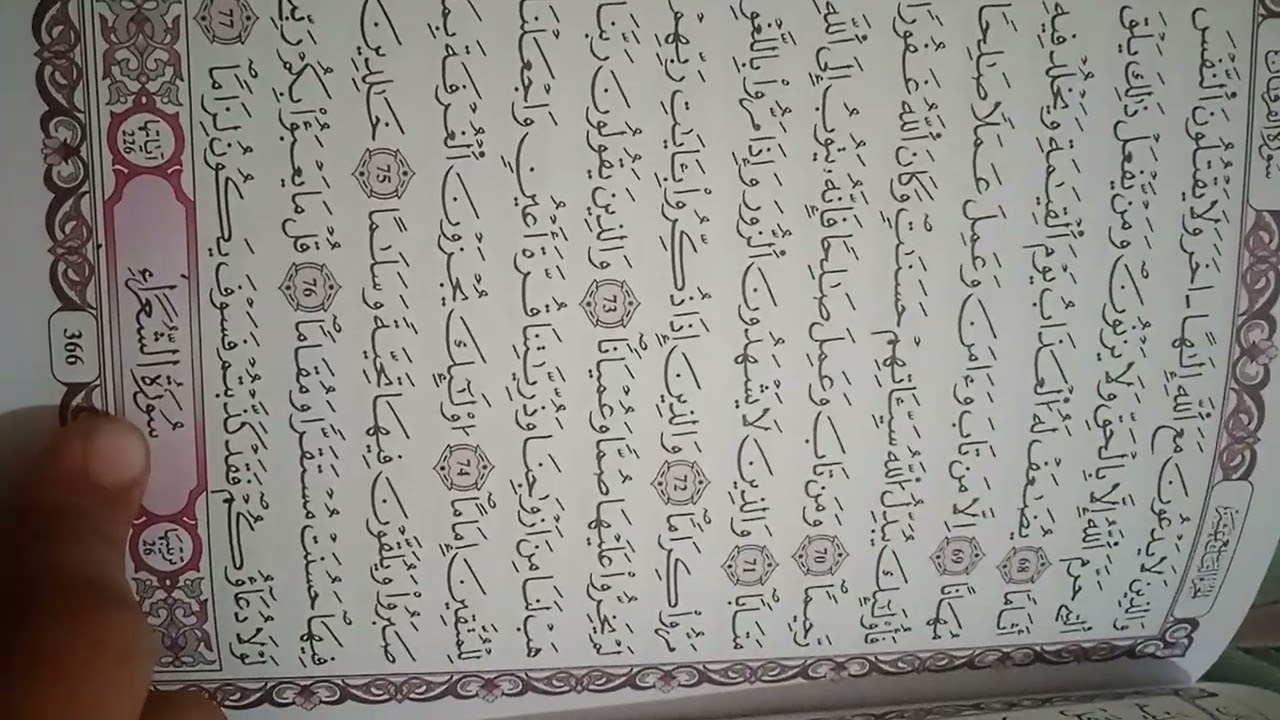 سورة الفرقان
وَالَّذِينَ لَا يَدْعُونَ مَعَ اللَّهِ إِلَٰهًا ـاخَرَ وَلَا يَقْتُلُونَ النَّفْسَ
الَّتِي حَرَّمَ اللَّهُ إِلَّا بِالْحَقِّ وَلَا يَزْنُونَ وَمَنْ يَّفْعَلْ ذَٰلِكَ يَلْقَ
أَثَامًا 68 يُضَٰعَفْ لَهُ الْعَذَابُ يَوْمَ الْقِيَٰمَةِ وَيَخْلُدْ فِيهِ
مُهَانًا 69 اِلَّا مَن تَابَ وَءَامَنَ وَعَمِلَ عَمَلًا صَٰلِحًا
فَأُوْلَٰٓئِكَ يُبَدِّلُ اللَّهُ سَيِّـَٔاتِهِمْ حَسَنَٰتٍ وَكَانَ اللَّهُ غَفُورًا
رَّحِيمًا 70 وَمَن تَابَ وَعَمِلَ صَٰلِحًا فَإِنَّهُۥ يَتُوبُ إِلَى اللَّهِ
مَتَابًا 71 وَالَّذِينَ لَا يَشْهَدُونَ الزُّورَ وَإِذَا مَرُّواْ بِاللَّغْوِ
مَرُّواْ كِرَامًا 72 وَالَّذِينَ إِذَا ذُكِّرُواْ بِـَٔايَٰتِ رَبِّهِمْ
لَمْ يَخِرُّواْ عَلَيْهَا صُمًّا وَعُمْيَانًا 73 وَالَّذِينَ يَقُولُونَ رَبَّنَا
هَبْ لَنَا مِنَ اَزْوَٰجِنَا وَذُرِّيَّٰتِنَا قُرَّةَ أَعْيُنٍ وَاجْعَلْنَا
لِلْمُتَّقِينَ إِمَامًا 74 اُوْلَٰٓئِكَ يُجْزَوْنَ الْغُرْفَةَ بِمَا
صَبَرُواْ وَيُلَقَّوْنَ فِيهَا تَحِيَّةً وَسَلَٰمًا 75 خَٰلِدِينَ
فِيهَا حَسُنَتْ مُسْتَقَرًّا وَمُقَامًا 76 قُلْ مَا يَعْبَؤُاْ بِكُمْ رَبِّي
لَوْلَا دُعَآؤُكُمْ فَقَدْ كَذَّبْتُمْ فَسَوْفَ يَكُونُ لِزَامًا 77
ترتيبها 26 سُورَةُ الشُّعَرَاءِ آياتها 226
366